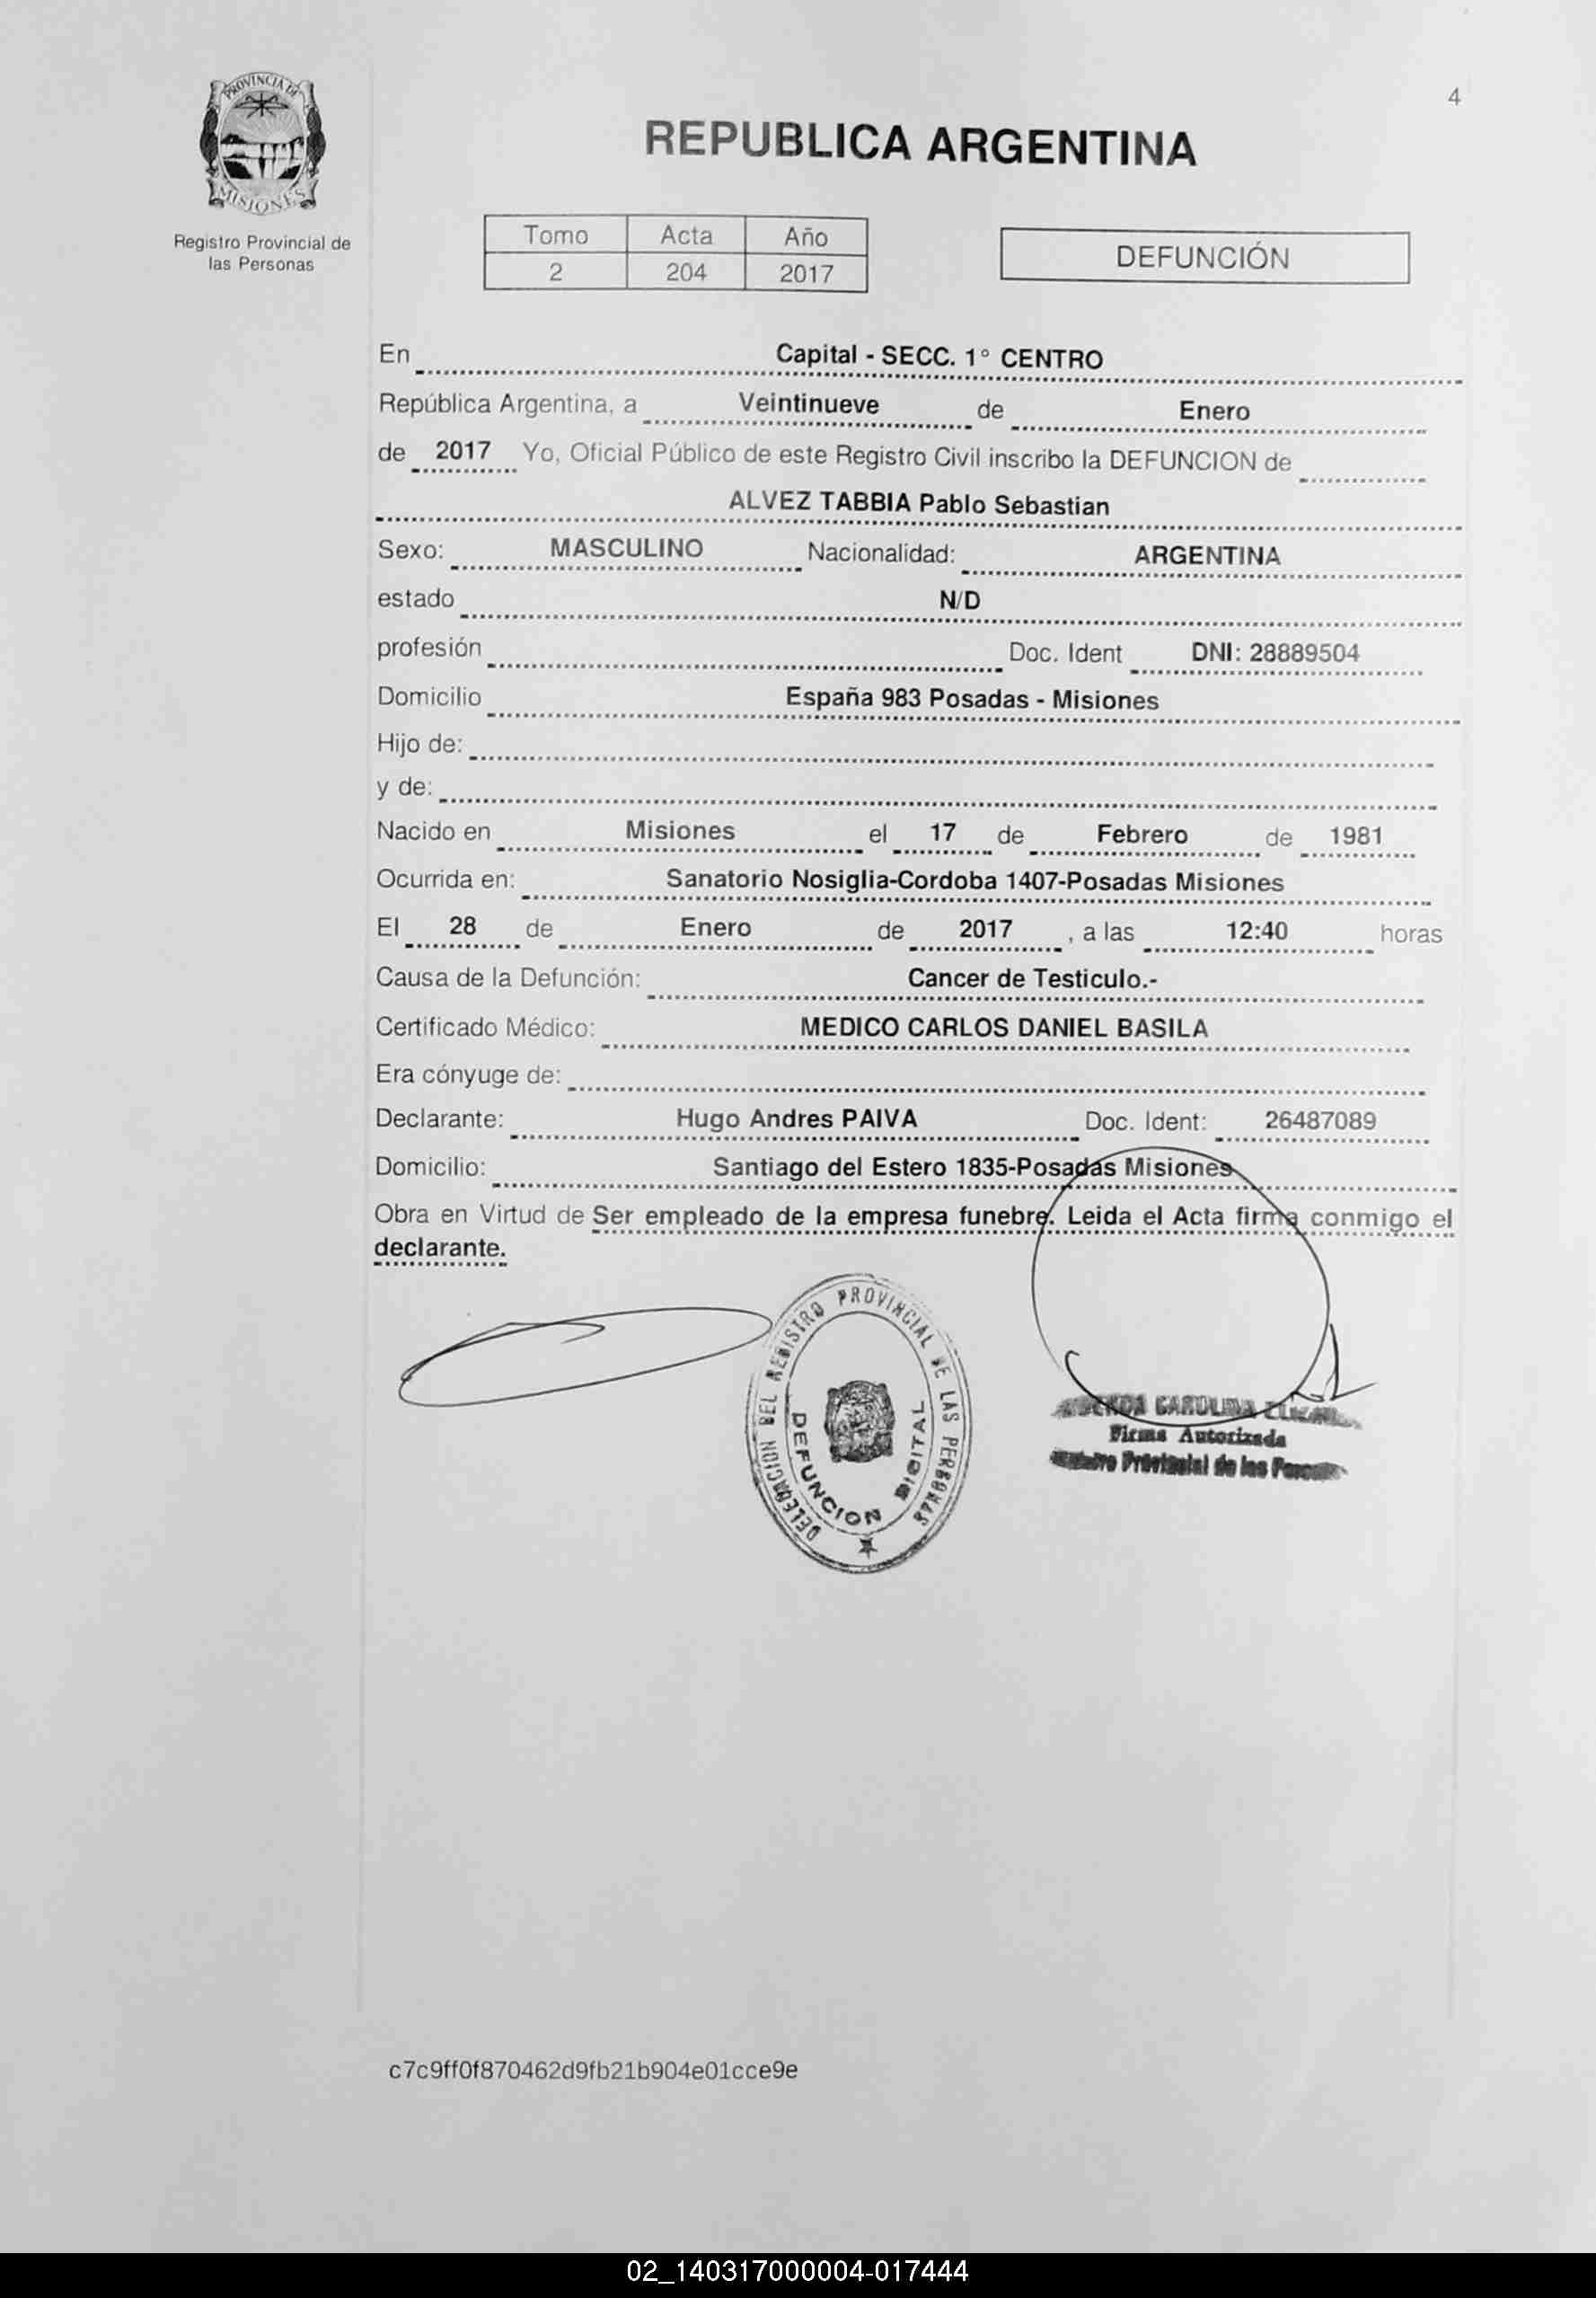 4
PROVINCIA DE
MISIONES
Registro Provincial de
las Personas
REPUBLICA ARGENTINA
Tomo Acta Año
2 204 2017
DEFUNCIÓN
En Capital - SECC. 1° CENTRO
República Argentina, a Veintinueve de Enero
de 2017 Yo, Oficial Público de este Registro Civil inscribo la DEFUNCION de
ALVEZ TABBIA Pablo Sebastian
Sexo: MASCULINO Nacionalidad: ARGENTINA
estado N/D
profesión Doc. Ident DNI: 28889504
Domicilio España 983 Posadas - Misiones
Hijo de:
y de:
Nacido en Misiones el 17 de Febrero de 1981
Ocurrida en: Sanatorio Nosiglia-Cordoba 1407-Posadas Misiones
El 28 de Enero de 2017 , a las 12:40 horas
Causa de la Defunción: Cancer de Testiculo.-
Certificado Médico: MEDICO CARLOS DANIEL BASILA
Era cónyuge de:
Declarante: Hugo Andres PAIVA Doc. Ident: 26487089
Domicilio: Santiago del Estero 1835-Posadas Misiones
Obra en Virtud de Ser empleado de la empresa funebre. Leida el Acta firma conmigo el
declarante.
DELEGACION DEL REGISTRO PROVINCIAL DE LAS PERSONAS
DEFUNCION DIGITAL
CAROLINA
Firma Autorizada
Provincial de las
c7c9ff0f870462d9fb21b904e01cce9e
02_140317000004-017444